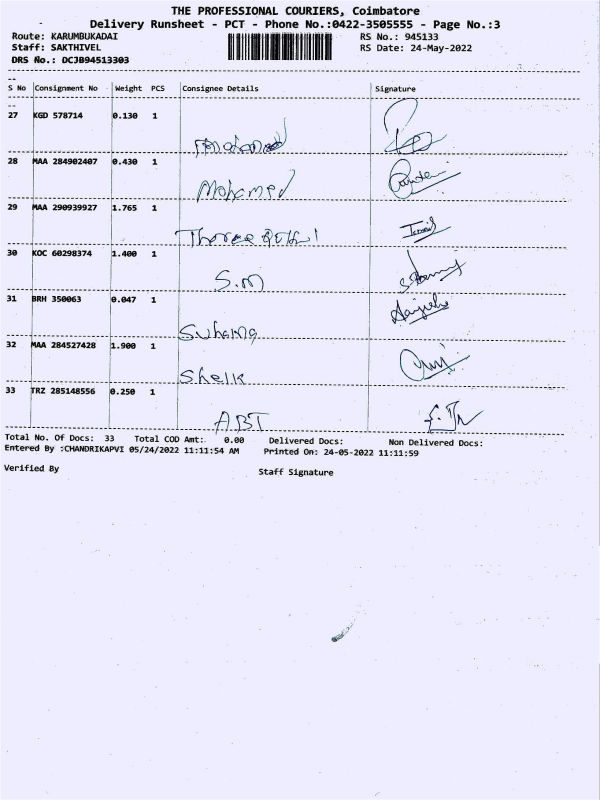 THE PROFESSIONAL COURIERS, Coimbatore
Delivery Runsheet - PCT - Phone No.:0422-3505555 - Page No.:3
Route: KARUMBUKADAI RS No.: 945133
Staff: SAKTHIVEL RS Date: 24-May-2022
DRS No.: DCJB94513303
S No Consignment No Weight PCS Consignee Details Signature
27 KGD 578714 0.130 1
28 MAA 284902407 0.430 1
Mohamed
29 MAA 290939927 1.765 1
30 KOC 60298374 1.400 1
S.M
31 BRH 350063 0.047 1
Suhaina
32 MAA 284527428 1.900 1
Sheik
33 TRZ 285148556 0.250 1
ABT
Total No. Of Docs: 33 Total COD Amt: 0.00 Delivered Docs: Non Delivered Docs:
Entered By :CHANDRIKAPVI 05/24/2022 11:11:54 AM Printed On: 24-05-2022 11:11:59
Verified By Staff Signature